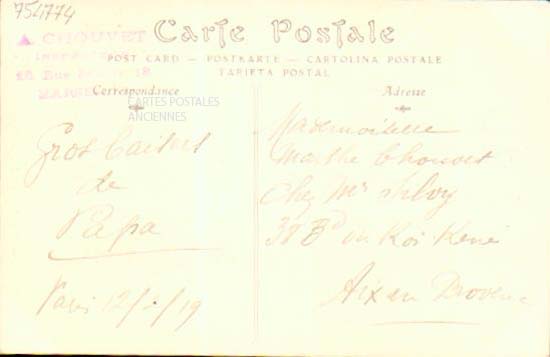 754774
A CHOUVET
Rue
Carte Postale
POST CARD — POSTKARTE — CARTOLINA POSTALE
TARJETA POSTAL
Correspondance
CARTES POSTALES
ANCIENNES
Gros Baisers
de
Papa
Paris 12/2/19
Adresse
Mademoiselle
Marthe Chouvet
Chez Mr
38 Bd du Roi René
Aix en Provence